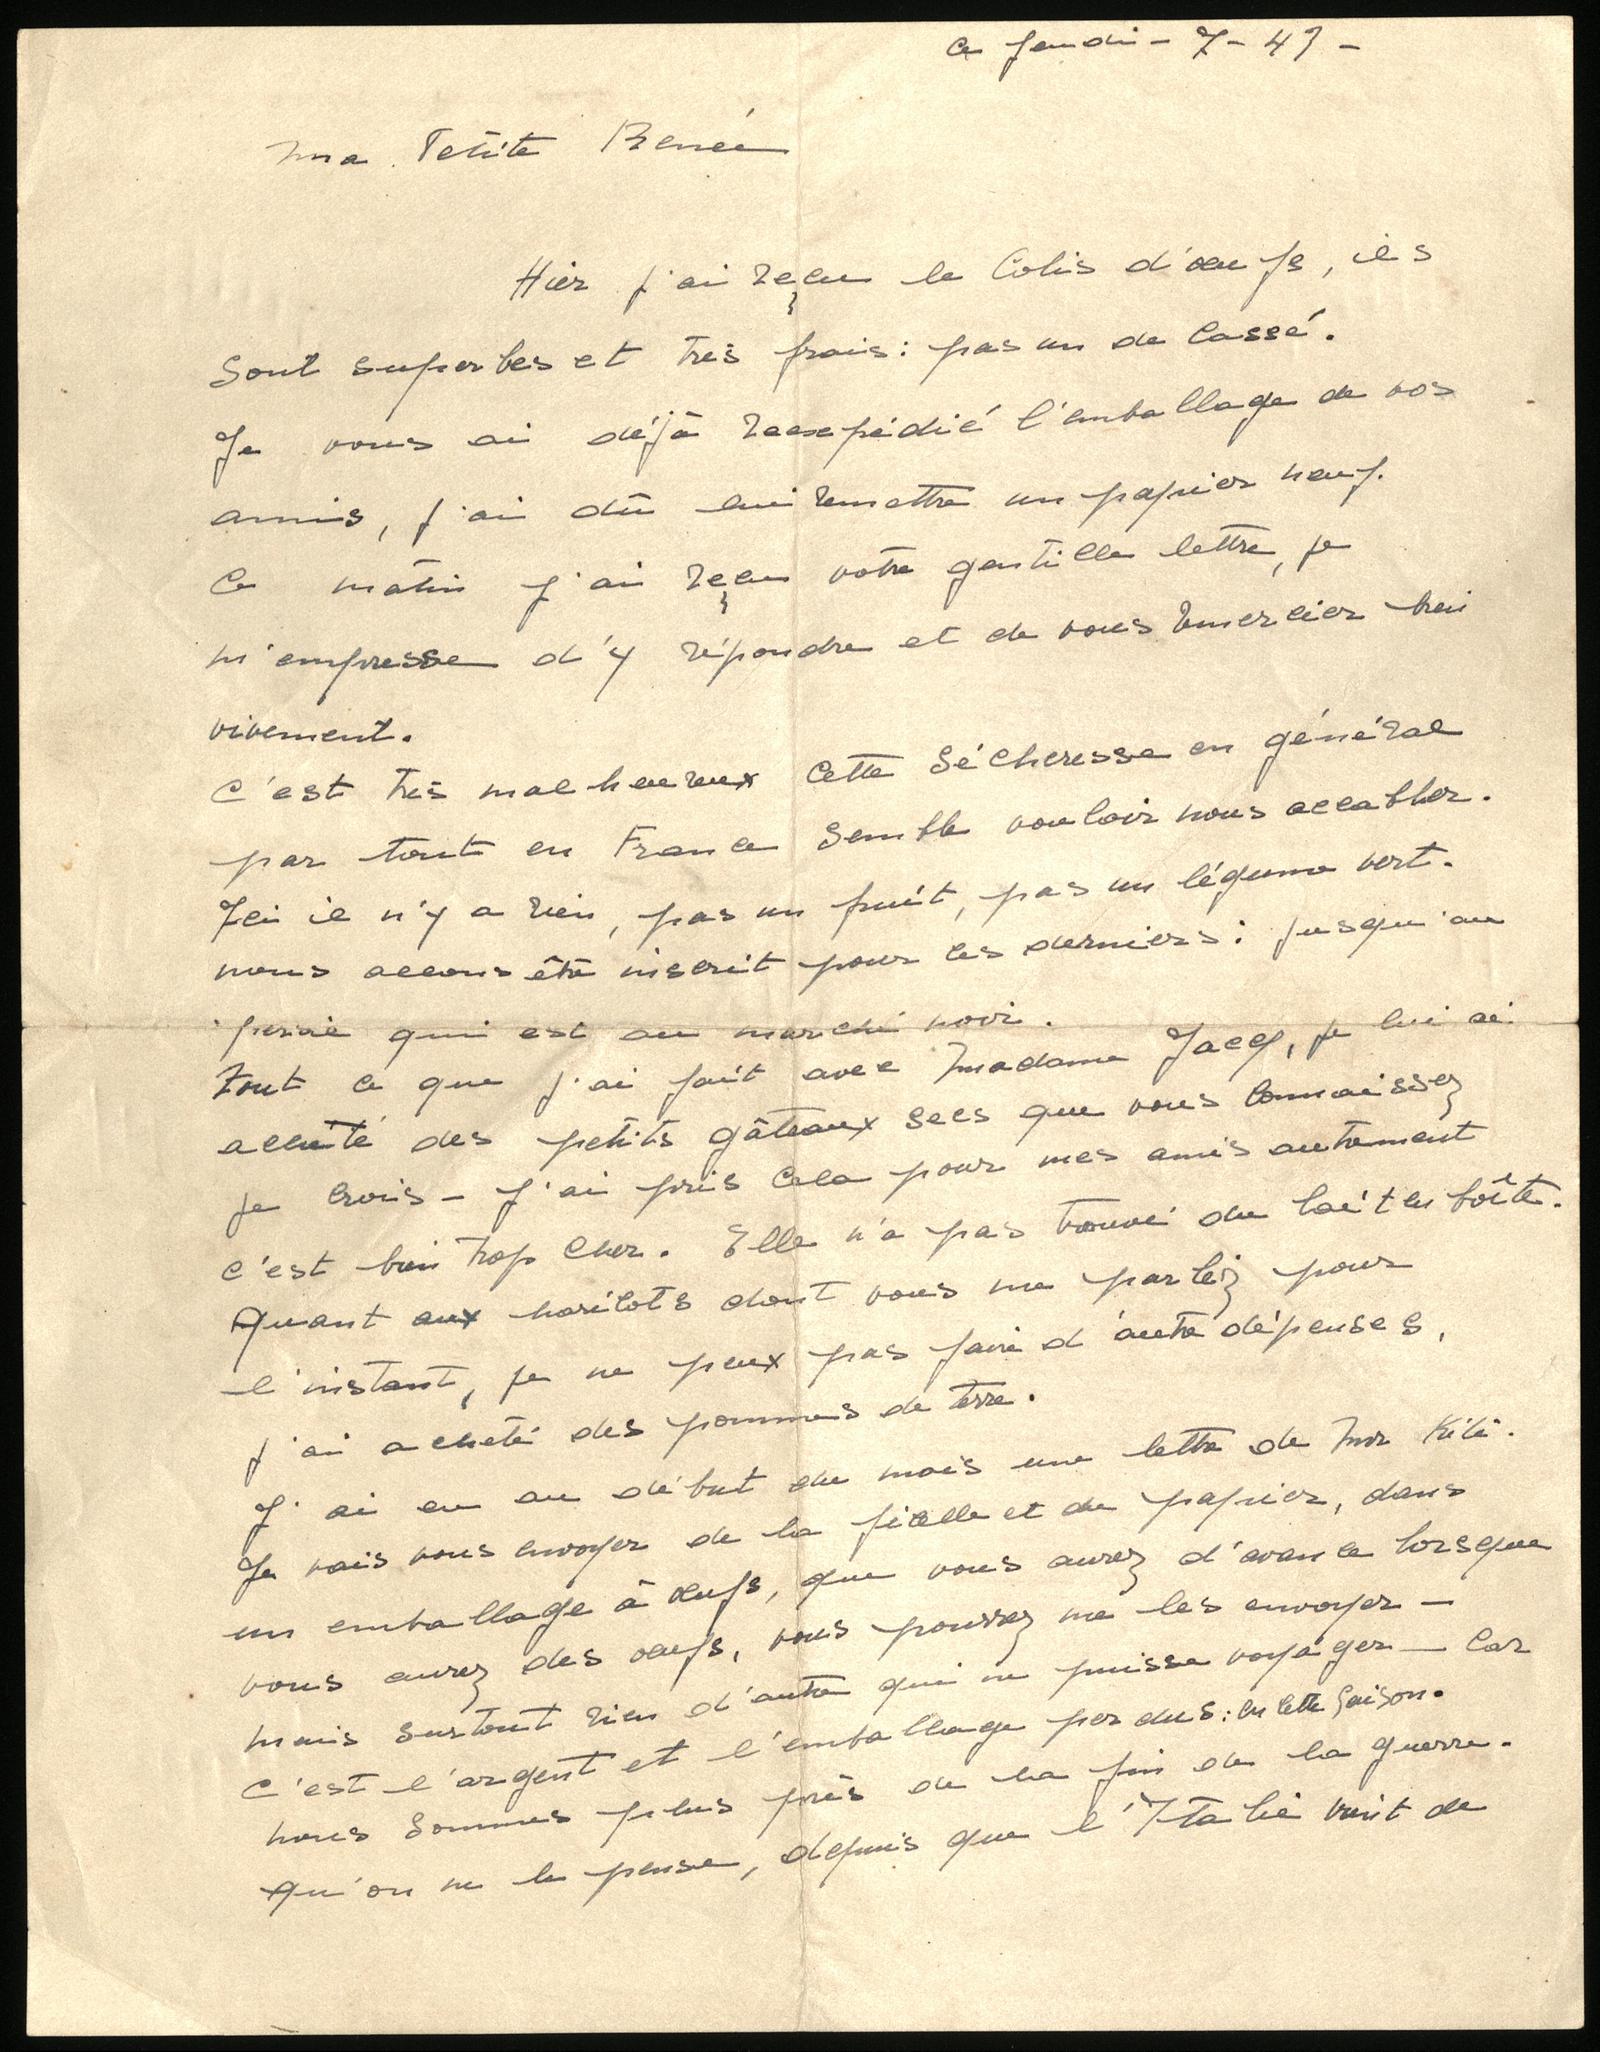 ce jeudi - 7 - 43 -
Ma Petite Renée
Hier j'ai reçu le Colis d'oeufs, ils
Sont superbes et très frais : pas un de Cassé.
Je vous ai déjà reexpédié l'emballage de vos
amis, j'ai dû lui remettre un papier neuf.
Ce matin j'ai reçu votre gentille lettre, je
m'empresse d'y répondre et de vous remercier bien
vivement.
C'est très malheureux Cette Sécheresse en général
par tout en France Semble vouloir nous accabler.
Ici il n'y a rien, pas un fruit, pas un légume vert.
nous allons être inscrit pour les derniers : jusqu'au
qui est au marché noir.
Tout ce que j'ai fait avec Madame Jacq, je lui ai
acheté des petits gâteaux Secs que vous Connaissez
je Crois - J'ai pris Cela pour mes amis autrement
C'est bien trop Cher. Elle n'a pas trouvé du lait en boîte.
Quant aux haricots dont vous me parlez pour
l'instant, je ne peux pas faire d'autre dépenses,
j'ai acheté des pommes de terre.
J'ai eu au début du mois une lettre de Mor
Je vais vous envoyer de la ficelle et du papier, dans
un emballage à oeufs, que vous aurez d'avance lorsque
vous aurez des oeufs, vous pourrez me les envoyer -
mais surtout rien d'autre qui ne puisse voyager - Car
C'est l'argent et l'emballage perdus : en Cette Saison.
nous Sommes plus près de la fin de la guerre.
Qu'on ne le pense, depuis que l'Italie vient de